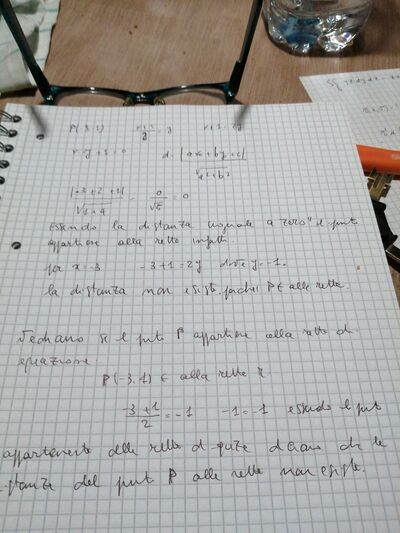 P(-3,-1) x+1/2 = y x+1=2y
x-2y+1=0 d=|ax+by+c|/√a²+b²
|-3+2+1|/√1+4 = 0/√5 = 0
Essendo la distanza uguale a "zero" il punto
appartiene alla retta infatti
per x=-3 -3+1=2y dove y=-1.
la distanza non esiste perché P∈ alla retta
Vediamo se il punto P appartiene alla retta di
equazione
P(-3,-1) ∈ alla retta r
-3+1/2 = -1 -1=-1 essendo il punto
appartenente alla retta diciamo che la
distanza del punto P alla retta non esiste.